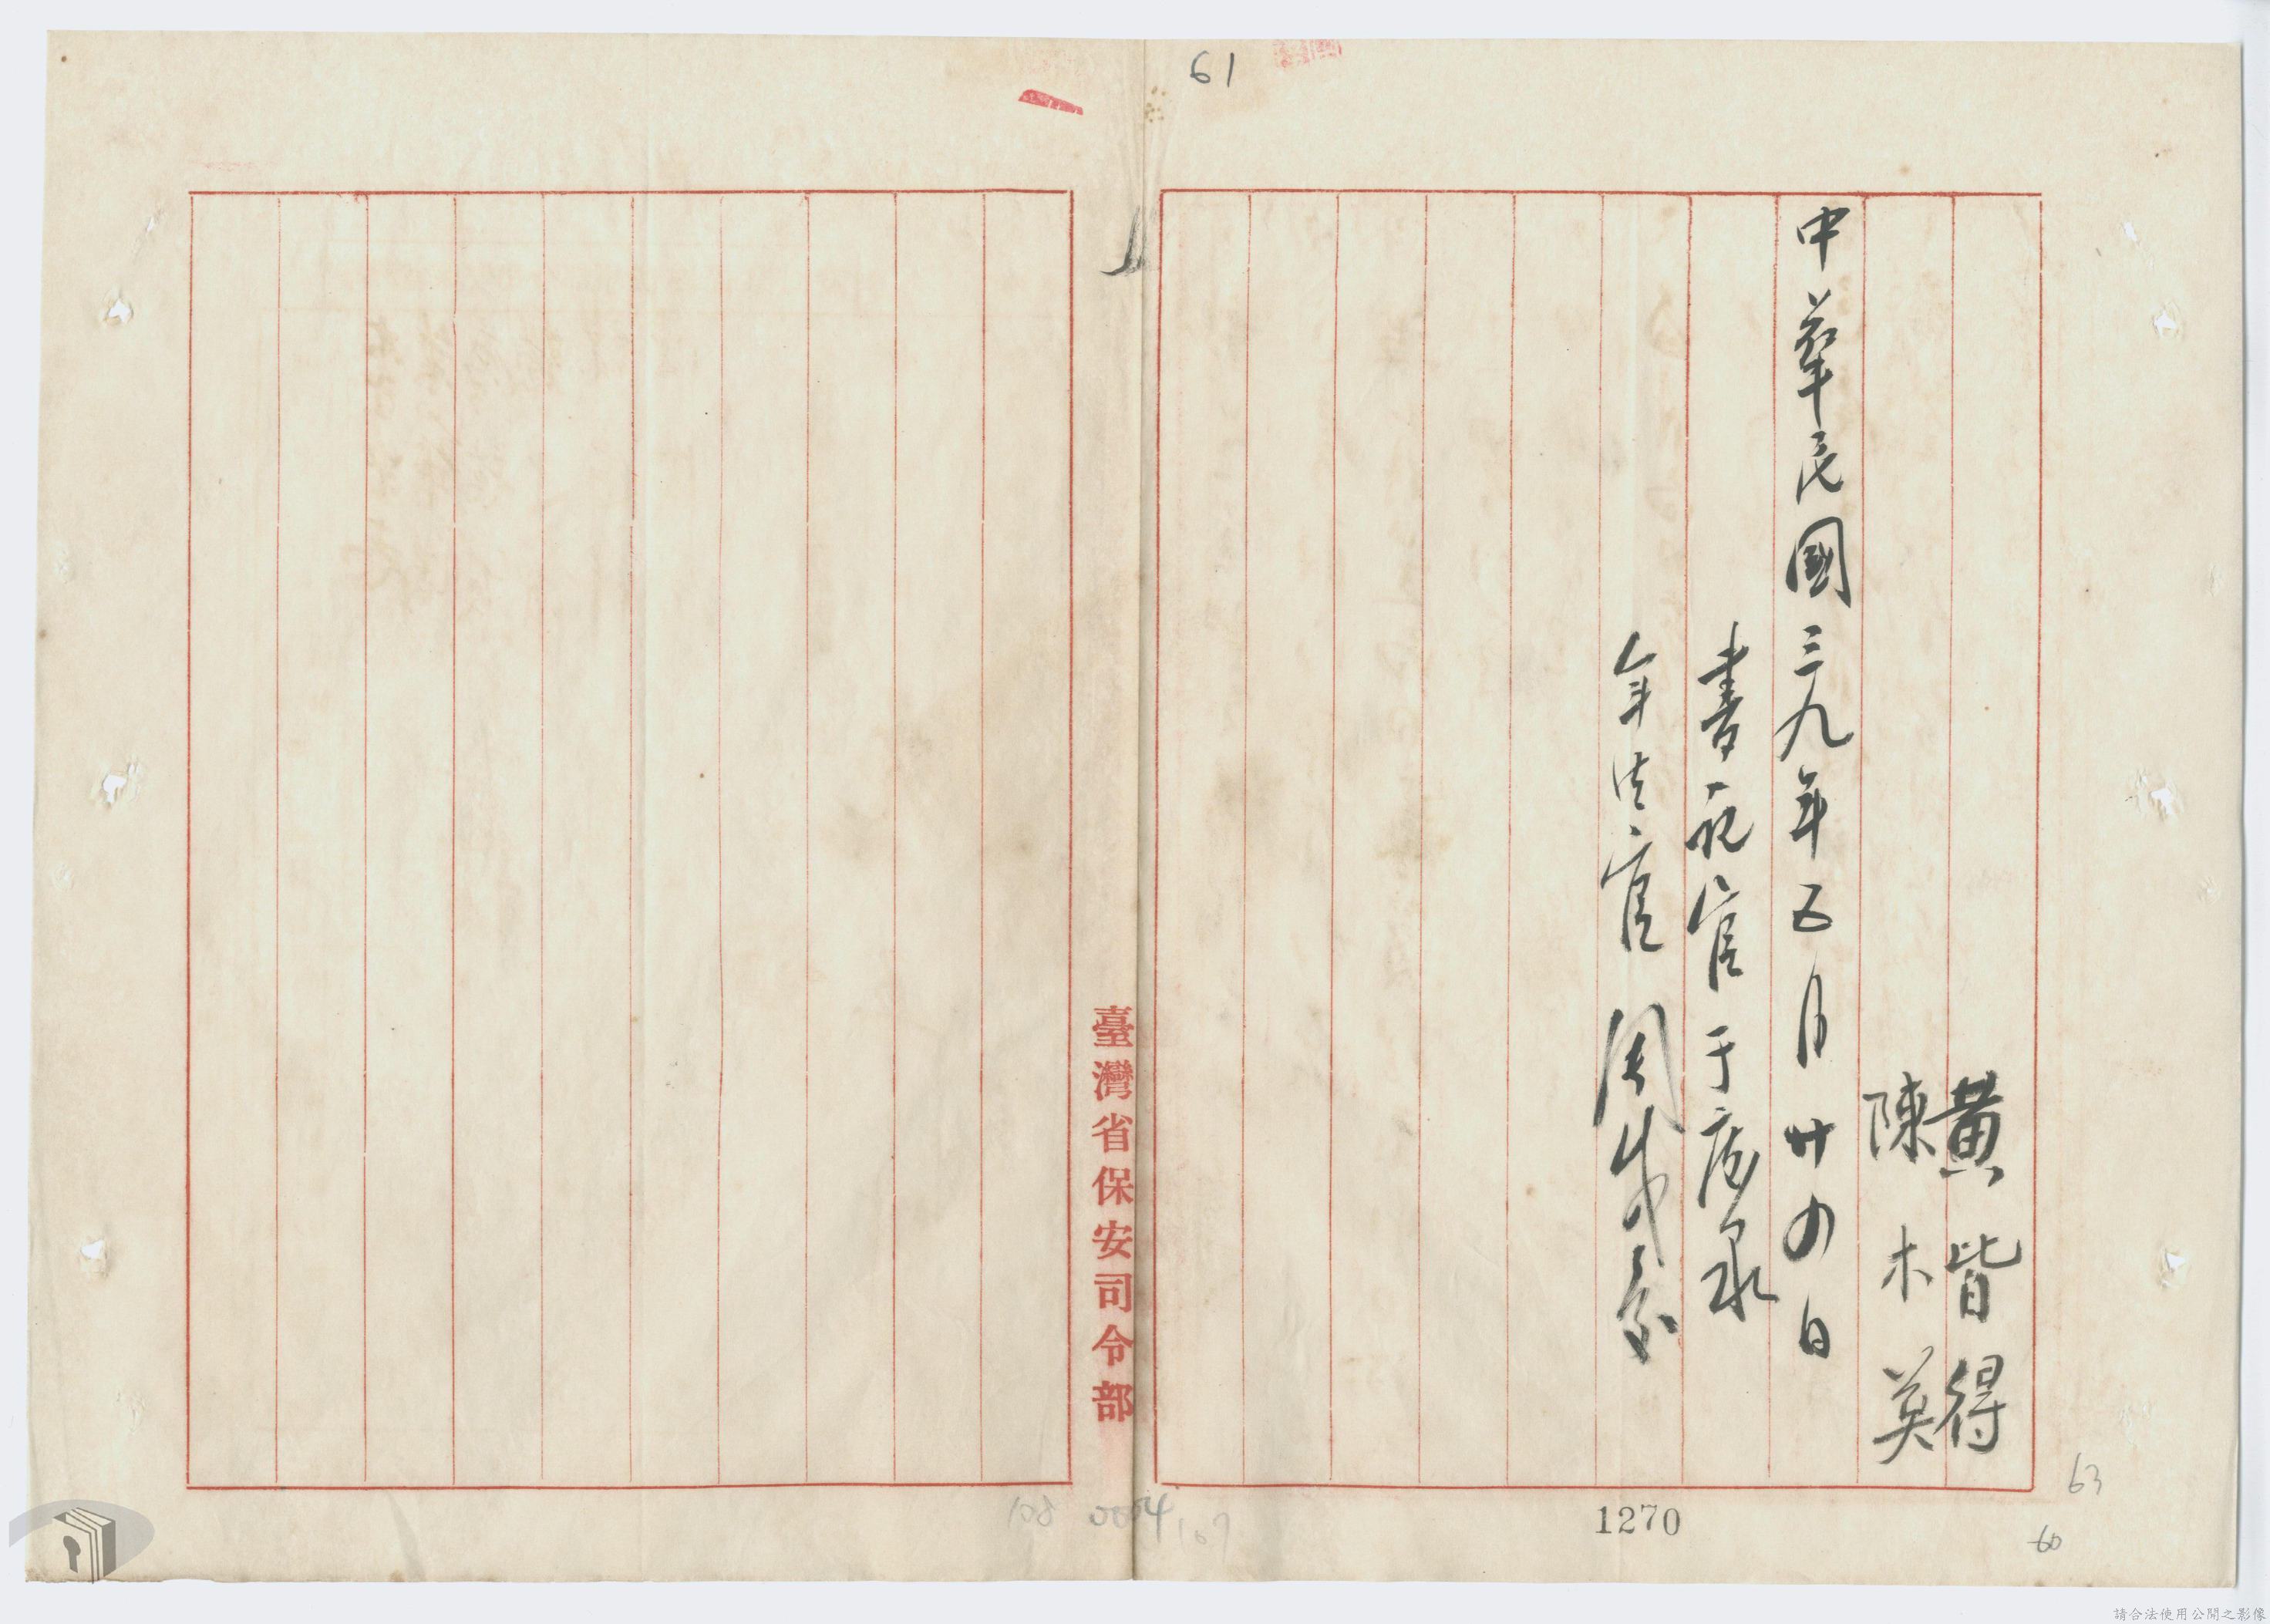 61
黃皆得
陳木英
中華民國三九年五月廿九日
書記官于彥泉
軍法官周咸慶
臺灣省保安司令部
108
0004
107
1270
63
60
請合法使用公開之影像